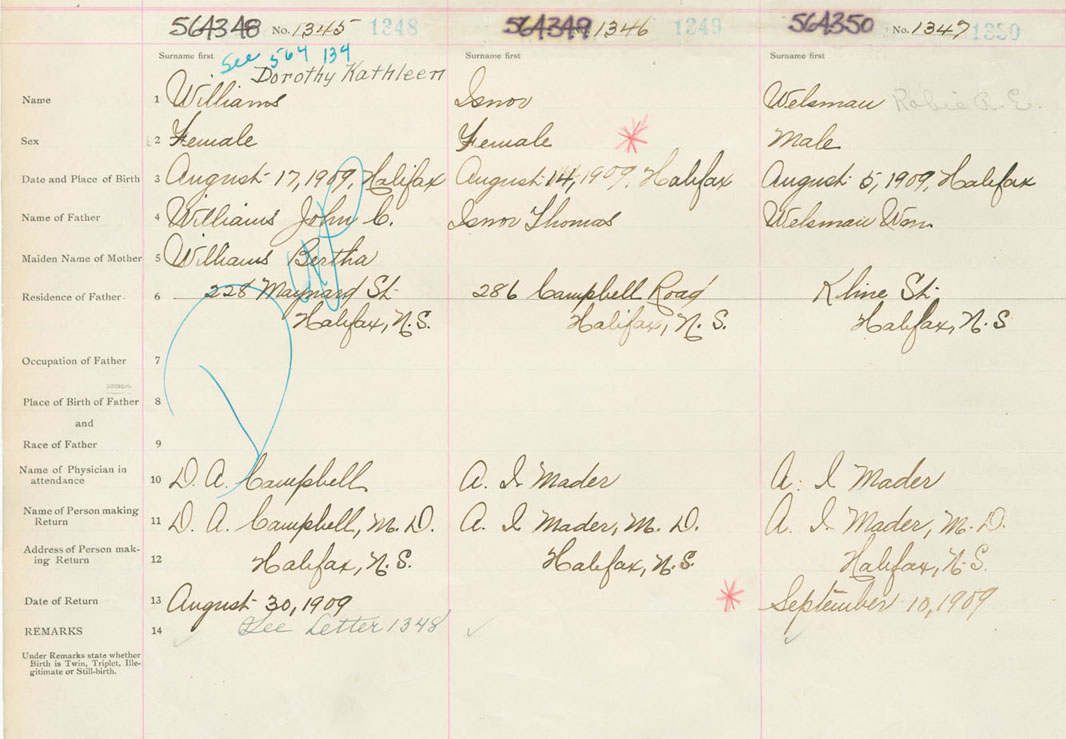 564348 No. 1345 1348 564349 1346 1349 564350 No. 1347 1350
Surname first Surname first Surname first
See 564 134
Dorothy Kathleen
Name 1 Williams Isnor Welsman Robie A. E.
Sex 2 Female Female Male
Date and Place of Birth 3 August 17, 1909, Halifax August 14, 1909, Halifax August 5, 1909, Halifax
Name of Father 4 Williams John C. Isnor Thomas Welsman Wm.
Maiden Name of Mother 5 Williams Bertha
Residence of Father 6 228 Maynard St. 286 Campbell Road Kline St.
Halifax, N.S. Halifax, N.S. Halifax, N.S
Occupation of Father 7
Place of Birth of Father 8
and
Race of Father 9
Name of Physician in
attendance 10 D. A. Campbell A. I. Mader A. I Mader
Name of Person making
Return 11 D. A. Campbell, M.D. A. I Mader, M.D. A. I. Mader, M.D.
Address of Person mak-
ing Return 12 Halifax, N.S. Halifax, N.S. Halifax, N.S.
Date of Return 13 August 30, 1909 September 10, 1909
REMARKS 14 See Letter 1348
Under Remarks state whether
Birth is Twin, Triplet, Ille-
gitimate or Still-birth.